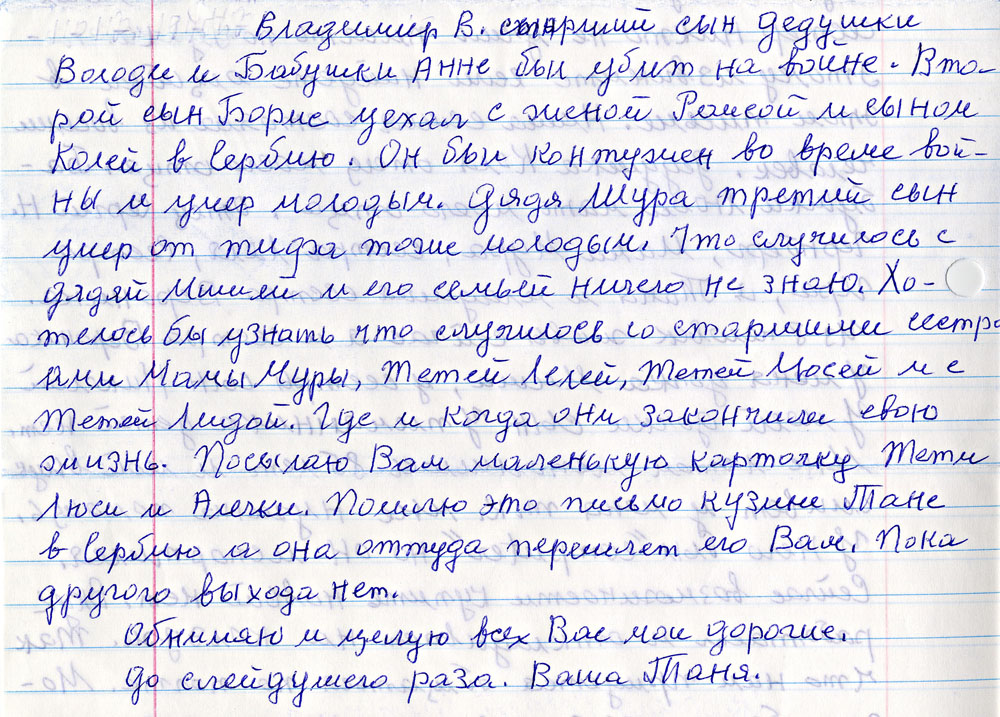 Владимир В. старший сын дедушки
Володи и Бабушки Анне был убит на войне. Вто-
рой сын Борис уехал с женой Раисой и сыном
Колей в Сербию. Он был контужен во време вой-
ны и умер молодым. Дядя Шура третий сын
умер от тифа тоже молодым. Что случилось с
дядяй Мишей и его семьей ничего не знаю. Хо-
телось бы узнать что случилось со старшими сестра
ами Мамы Муры, Тетей Лелей, Тетей Мосей и с
Тетей Лидой. Где и когда они закончили свою
жизнь. Посылаю Вам маленькую карточку Тети
Люси и Алечки. Пошлю это письмо кузине Тане
в Сербию а она оттуда перешлет его Вам. Пока
другого выхода нет.
Обнимаю и целую всех Вас мои дорогие.
До слейдушего раза. Ваша Таня.